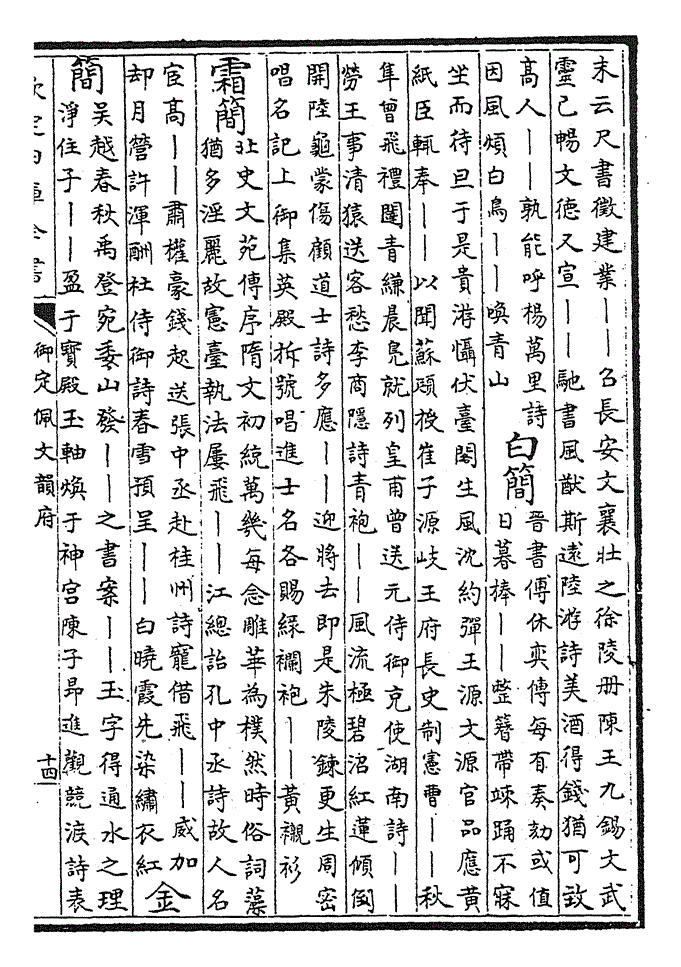 末云尺書徵建業——召長安文襄壯之徐陵册陳王九錫文武
靈已暢文德又宣——馳書風猷斯遠陸游詩美酒得錢猶可致
髙人——孰能呼楊萬里詩
因風煩白鳥——喚青山
白簡
晉書傅休奕傳每有奏劾或值
日暮捧——整簪帶竦踊不寐
坐而待旦于是貴游懾伏臺閣生風沈約彈王源文源官品應黄
紙臣輒奉——以聞蘇頲授崔子源岐王府長史制憲曹——秋
隼曾飛禮闈青縑晨鳬就列皇甫曾送元侍御充使湖南詩——
勞王事清猿送客愁李商隱詩青袍——風流極碧沼紅蓮傾倒
開陸龜蒙傷顧道士詩多應——迎將去即是朱陵鍊更生周密
唱名記上御集英殿拆號唱進士名各賜綠襴袍——黄襯衫
霜簡
北史文苑傳序隋文初統萬幾每念雕華為樸然時俗詞藻
猶多淫麗故憲臺執法屢飛——江總詒孔中丞詩故人名
宦髙——肅權豪錢起送張中丞赴桂州詩寵借飛——威加
却月營許渾酬杜侍御詩春雪預呈——白曉霞先染繡衣紅
金
簡
吳越春秋禹登宛委山發——之書案——玉字得通水之理
淨住子——盈于寳殿玉軸煥于神宫陳子昂進觀競渡詩表
欽定四庫全書
御定佩文韻府
十四